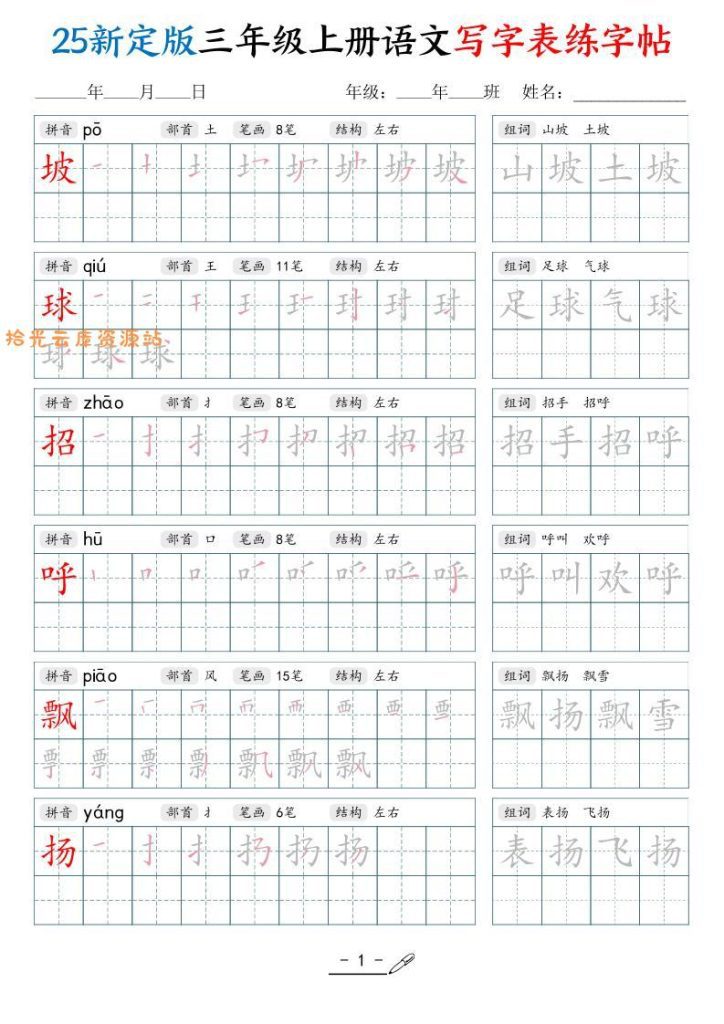 25新定版三年级上册语文写字表练字帖
______年____月____日 年级：____年____班 姓名：____________
拼音 pō 部首 土 笔画 8笔 结构 左右 组词 山坡 土坡
坡 山坡土坡
拼音 qiú 部首 王 笔画 11笔 结构 左右 组词 足球 气球
球 足球气球
拾光云库资源站
球球球
拼音 zhāo 部首 扌 笔画 8笔 结构 左右 组词 招手 招呼
招 招 招手招呼
拼音 hū 部首 口 笔画 8笔 结构 左右 组词 呼叫 欢呼
呼 呼 呼叫欢呼
拼音 piāo 部首 风 笔画 15笔 结构 左右 组词 飘扬 飘雪
飘 飘扬飘雪
飘
拼音 yáng 部首 扌 笔画 6笔 结构 左右 组词 表扬 飞扬
扬 扬 表扬飞扬
- 1 -